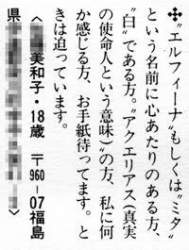 ✣“エルフィーナ”もしくは“ミタ”
という名前に心あたりのある方、
“白”である方。“アクエリアス(真実
の使命人という意味)”の方、私に何
か感じる方、お手紙待ってます。と
きは迫っています。
〈美和子・18歳 〒960-07福島
県〉